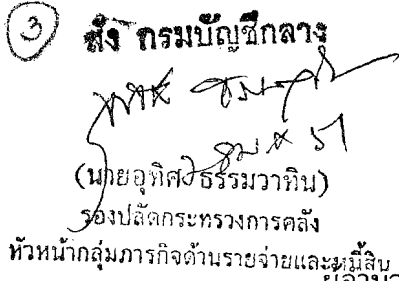 3 สั่ง กรมบัญชีกลาง
(นายอุทิศ ธรรมวาทิน)
รองปลัดกระทรวงการคลัง
หัวหน้ากลุ่มภารกิจด้านรายจ่ายและหนี้สิน